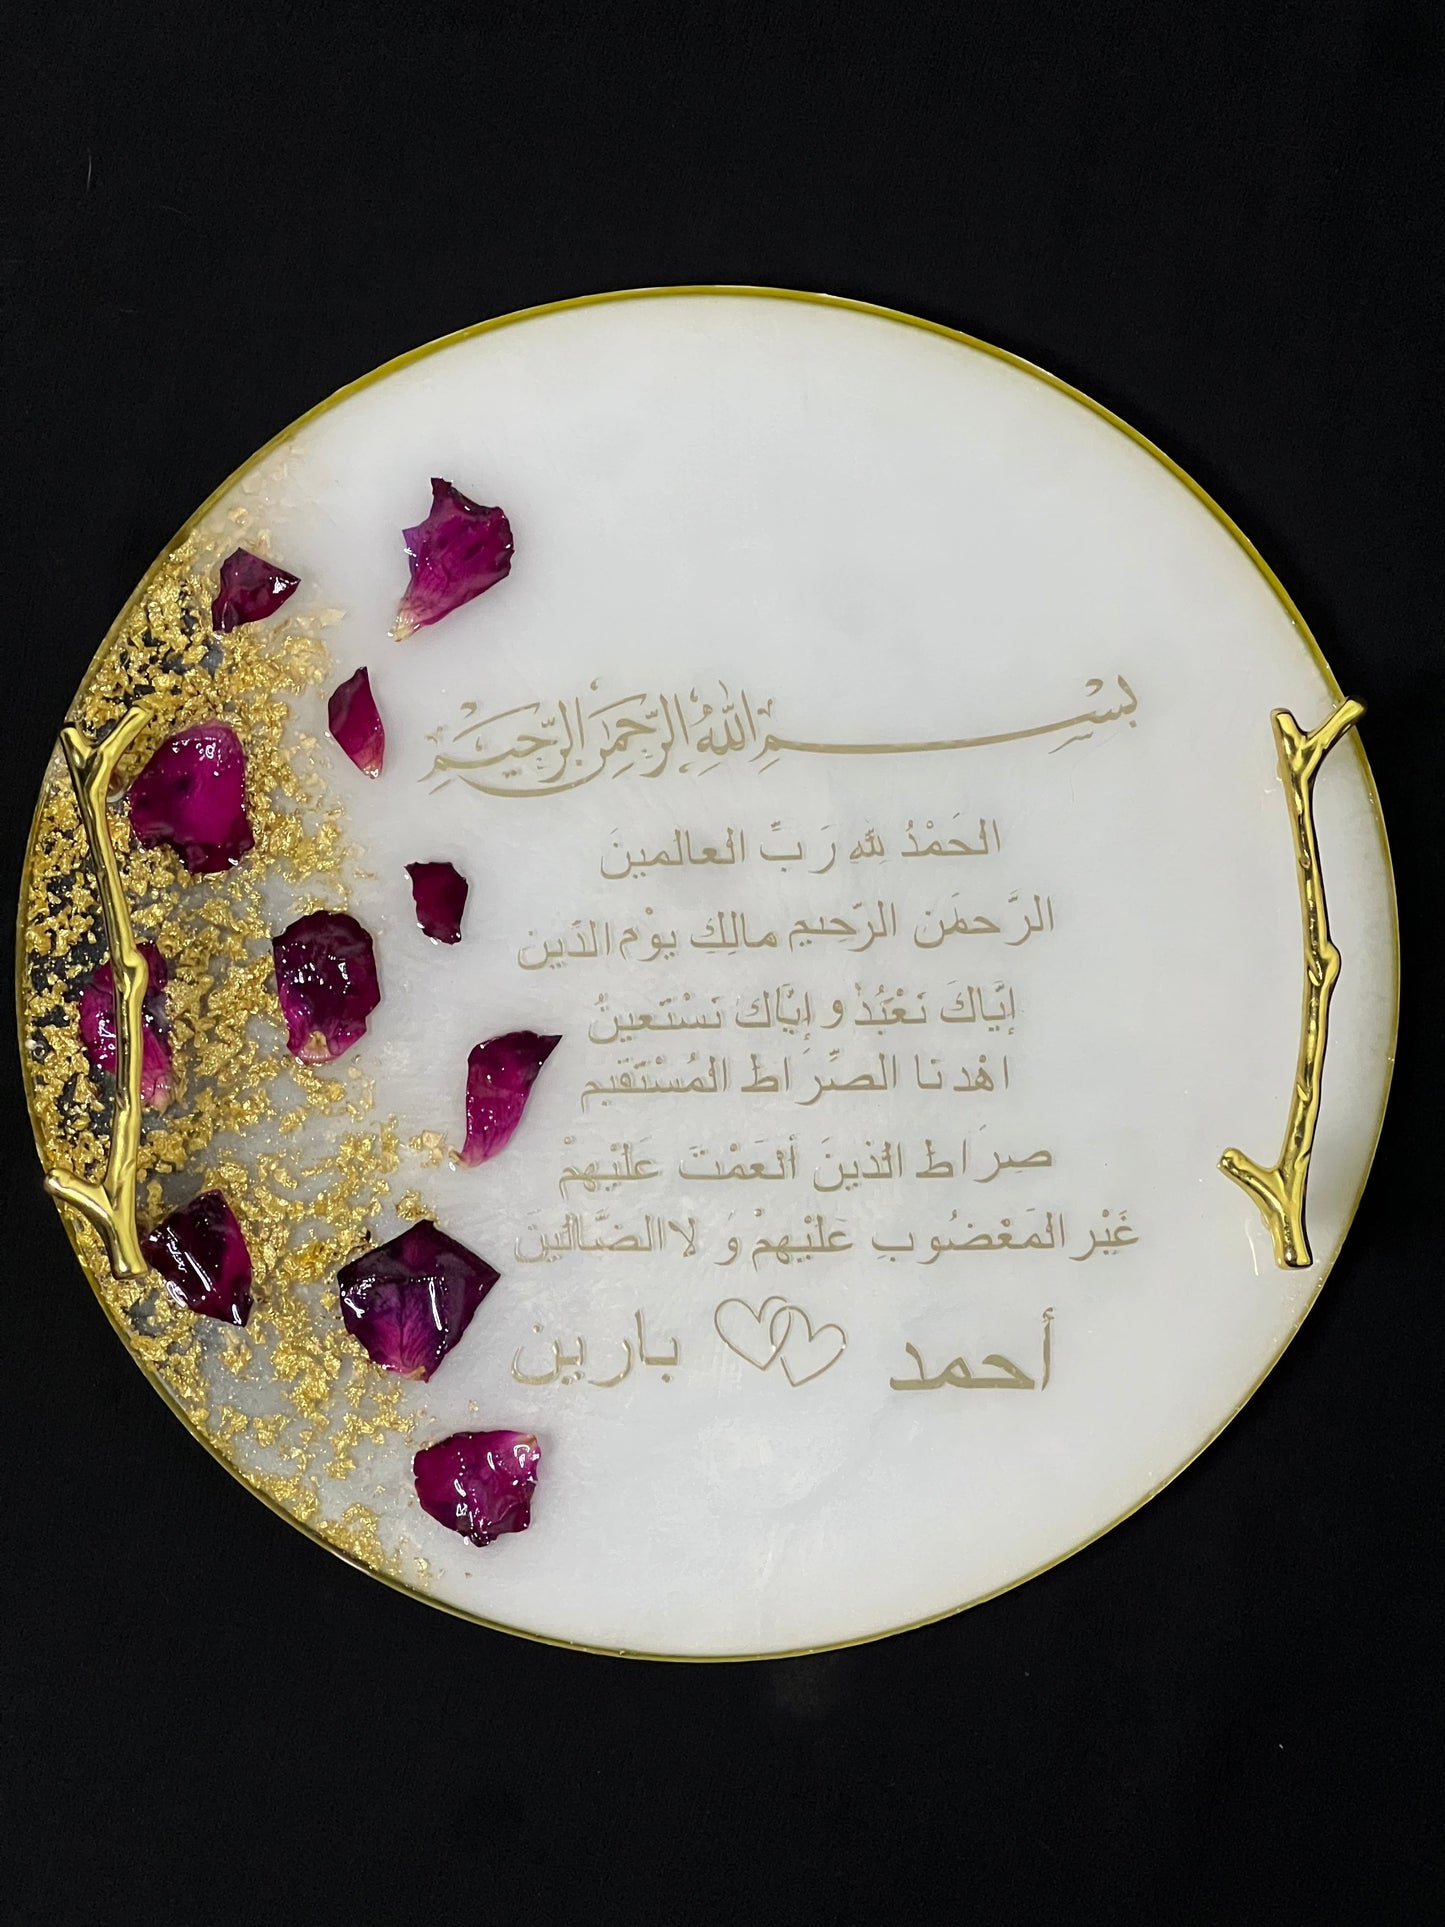 بِسْمِ اللَّهِ الرَّحْمَٰنِ الرَّحِيمِ
الحَمْدُ لِلهِ رَبِّ العالمينَ
الرَّحمَٰن الرَّحِيم مالِكِ يوْم الدِّين
إيَّاكَ نَعْبُدُ و إيَّاكَ نَسْتَعينُ
اهْدنا الصِّرَاطَ المُسْتَقيم
صرَاط الذينَ أنعَمْتَ عَليْهمْ
غَيْر المَغْضُوبِ عَليْهِمْ وَ لا الضَّالّينَ
أحمد بارين